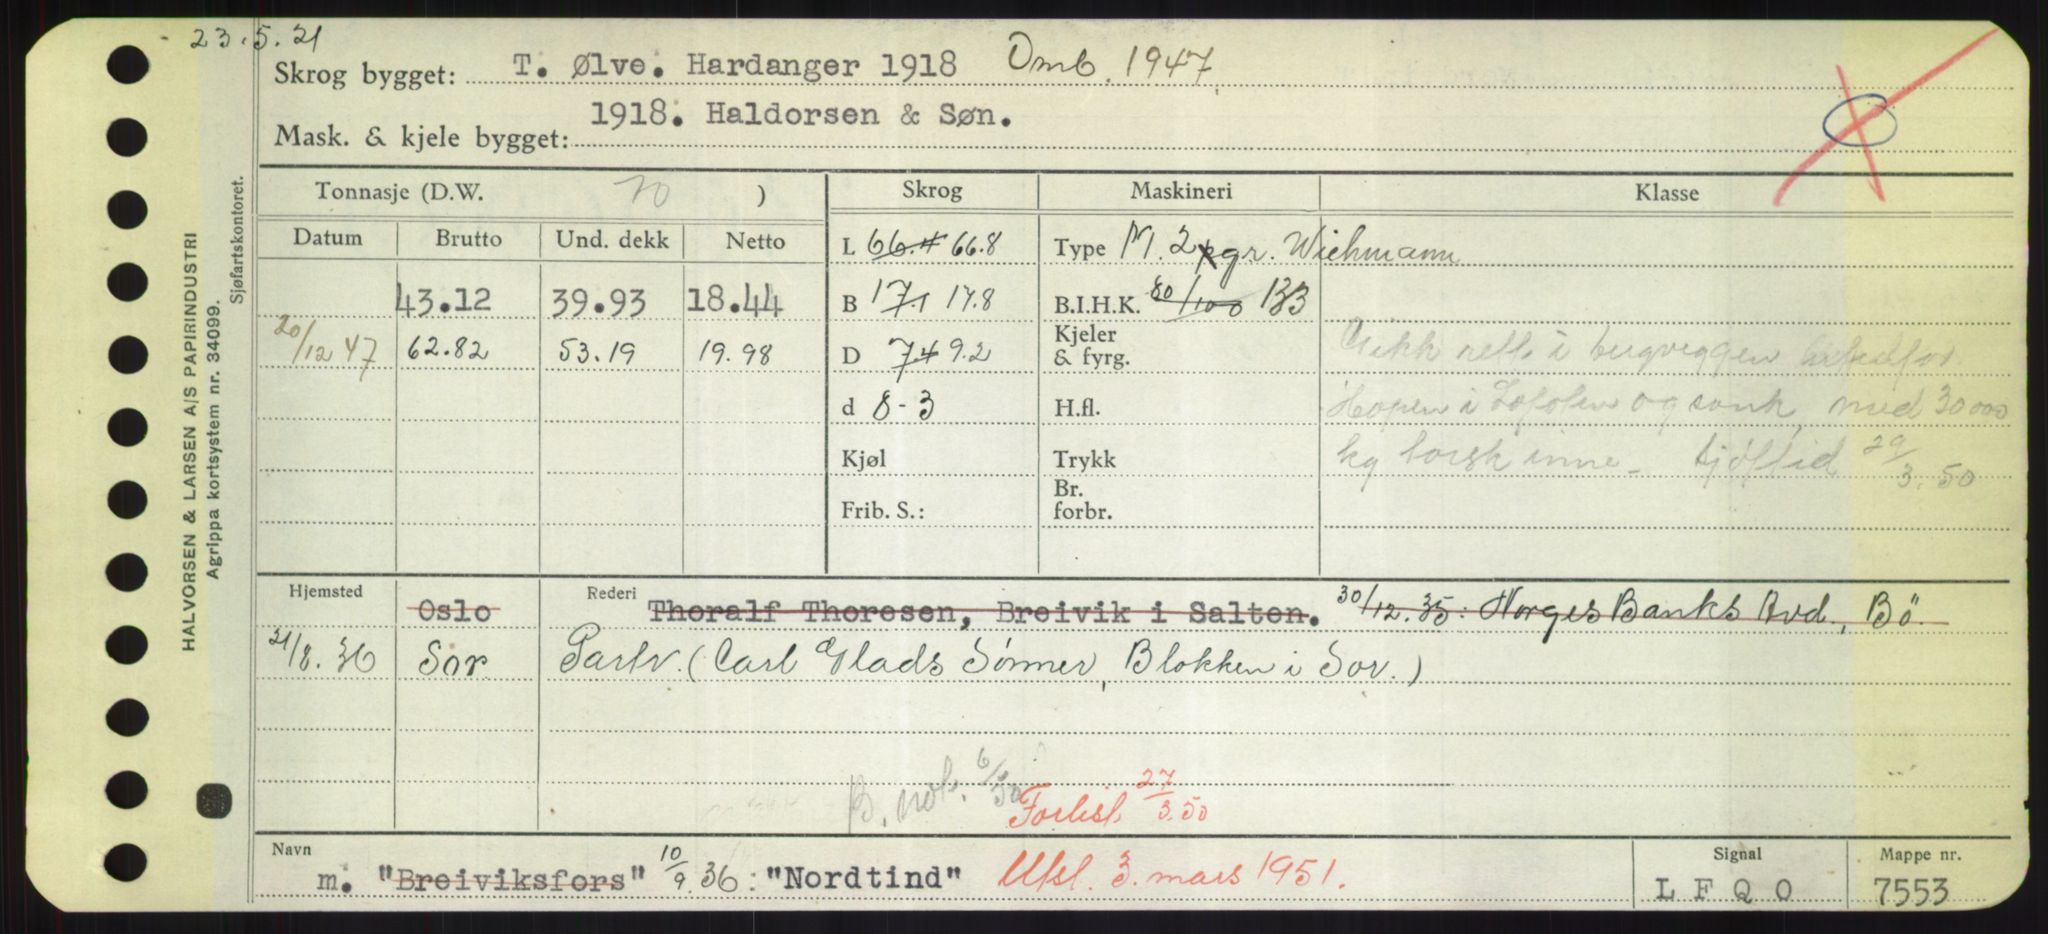 23.5.21
Skrog bygget: T. Ølve. Hardanger 1918 Omb. 1947
Mask. & kjele bygget: 1918. Haldorsen & Søn.
Tonnasje (D.W. 70 ) Skrog Maskineri Klasse
Datum Brutto Und. dekk Netto
L 66.4 66.8 Type M. 2 gr. Wichmann
43.12 39.93 18.44 B 17.1 17.8 B.I.H.K. 80/100 133
20/12 47 62.82 53.19 19.98 D 7.4 9.2 Kjeler & fyrg.
Gikk rett i bergveggen
d 8-3 H.fl. Hopen i Lofoten og sank med 30 000
Kjøl Trykk kg torsk inne - 29/3.50
Frib. S.: Br. forbr.
Hjemsted Oslo Rederi Thoralf Thoresen, Breivik i Salten. 30/12.35: Norges Banks Avd., Bö.
21/8.36 Sor Partr. (Carl Glads Sönner, Blokken i Sor.)
B. not. 6/50
Forlist 27/3.50
Navn m. "Breiviksfors" 10/9.36: "Nordtind" Utsl. 3. mars 1951.
Signal LFQO
Mappe nr. 7553
HALVORSEN & LARSEN A/S PAPIRINDUSTRI
Agrippa kortsystem nr. 34099.
Sjøfartskontoret.